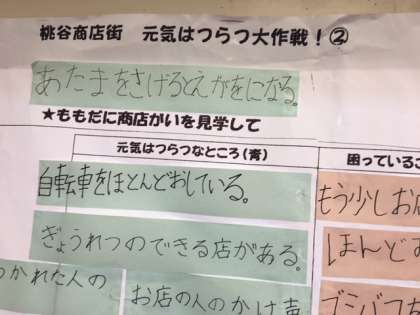 桃谷商店街　元気はつらつ大作戦！②
あたまをさげるとえがをになる。
★ももだに商店がいを見学して
元気はつらつなところ（青）
困っているこ
自転車をほとんどおしている。
もう少しお店
ぎょうれつのできる店がある。
ほんどお
つかれた人の
お店の人のかけ声
ゴミバコ